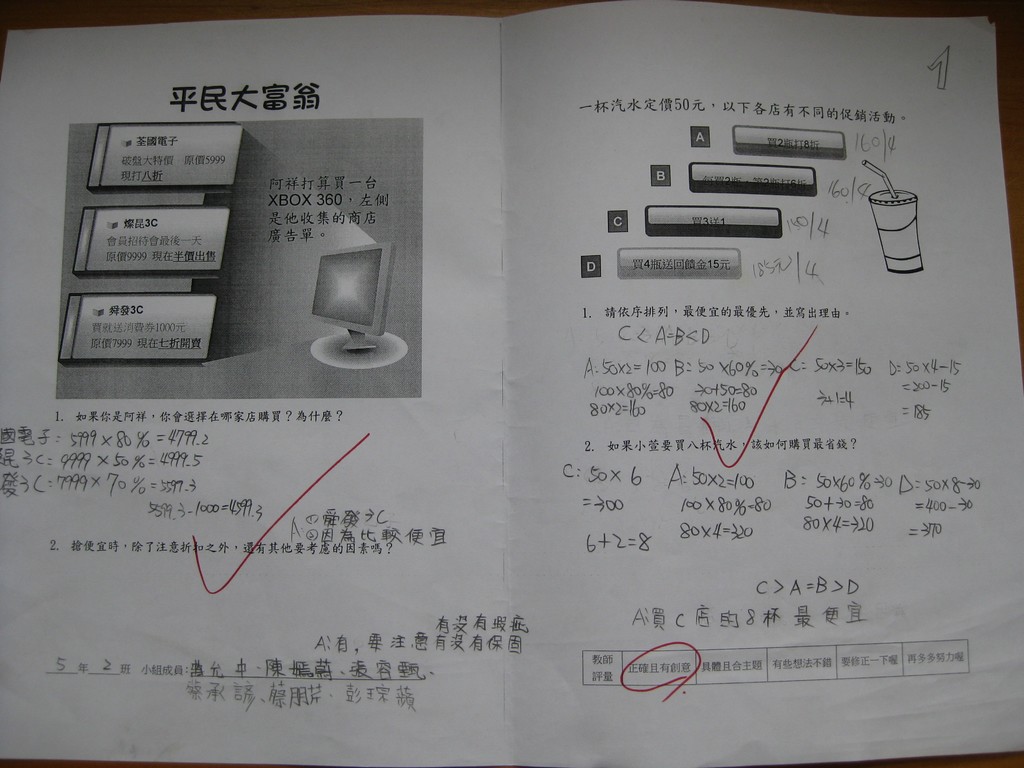 平民大富翁
荃國電子
破盤大特價 原價5999
現打八折
燦昆3C
會員招待會最後一天
原價9999 現在半價出售
舜發3C
買就送消費券1000元
原價7999 現在七折開賣
阿祥打算買一台
XBOX 360，左側
是他收集的商店
廣告單。
1. 如果你是阿祥，你會選擇在哪家店購買？為什麼？
國電子：5999×80%=4799.2
昆3C：9999×50%=4999.5
發3C：7999×70%=5599.3
5599.3-1000=4599.3
A：①舜發3C
②因為比較便宜
2. 搶便宜時，除了注意折扣之外，還有其他要考慮的因素嗎？
有沒有瑕疵
A：有，要注意有沒有保固
5年2班 小組成員：
1
一杯汽水定價50元，以下各店有不同的促銷活動。
A 買2瓶打8折 160/4
B 每買2瓶，第2瓶打6折 160/4
C 買3送1 /4
D 買4瓶送回饋金15元 185元/4
1. 請依序排列，最便宜的最優先，並寫出理由。
C<A=B<D
A：50×2=100 B：50×60%=30 C：50×3=150 D：50×4-15
100×80%=80 30+50=80 3+1=4 =200-15
80×2=160 80×2=160 =185
2. 如果小萱要買八杯汽水，該如何購買最省錢？
C：50×6 A：50×2=100 B：50×60%=30 D：50×8-30
=300 100×80%=80 50+30=80 =400-30
6+2=8 80×4=320 80×4=320 =370
C>A=B>D
A：買C店的8杯最便宜
教師評量 正確且有創意 具體且合主題 有些想法不錯 要修正一下喔 再多多努力喔